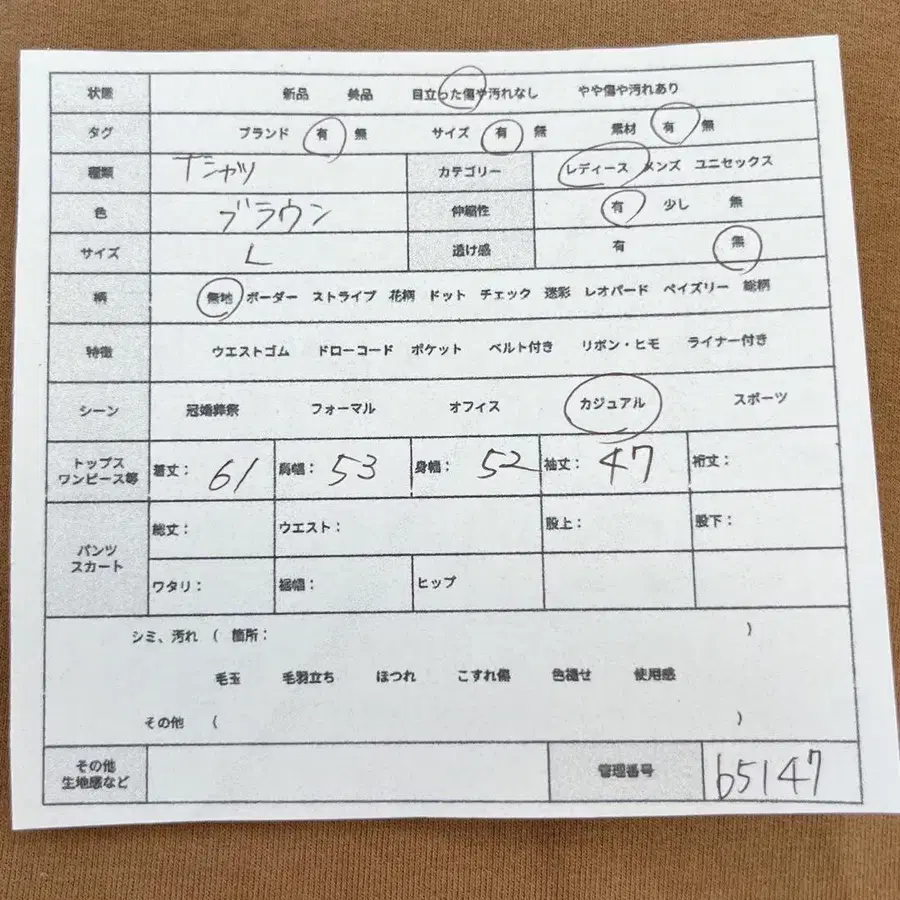 状態 新品 美品 目立った傷や汚れなし やや傷や汚れあり
タグ ブランド 有 無 サイズ 有 無 素材 有 無
種類 Tシャツ カテゴリー レディース メンズ ユニセックス
色 ブラウン 伸縮性 有 少し 無
サイズ L 透け感 有 無
柄 無地 ボーダー ストライプ 花柄 ドット チェック 迷彩 レオパード ペイズリー 総柄
特徴 ウエストゴム ドローコード ポケット ベルト付き リボン・ヒモ ライナー付き
シーン 冠婚葬祭 フォーマル オフィス カジュアル スポーツ
トップス
ワンピース等 着丈: 61 肩幅: 53 身幅: 52 袖丈: 47 裄丈:
パンツ
スカート 総丈: ウエスト: 股上: 股下:
ワタリ: 裾幅: ヒップ
シミ、汚れ ( 箇所: )
毛玉 毛羽立ち ほつれ こすれ傷 色褪せ 使用感
その他 ( )
その他
生地感など 管理番号 b5147